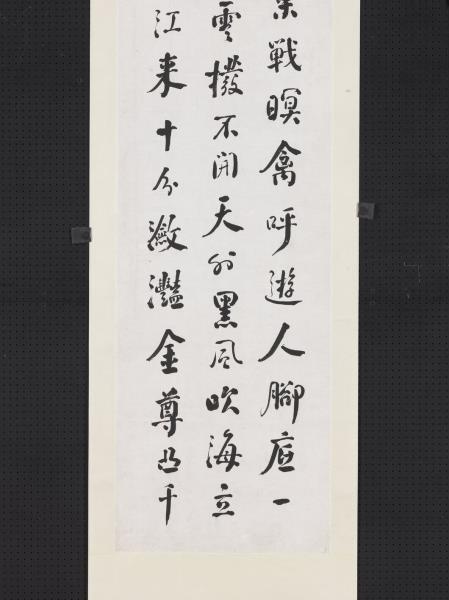 戦暝禽呼遊人腳底一
雲撥不開天外黑風吹海立
江来十分瀲灩金尊凸千